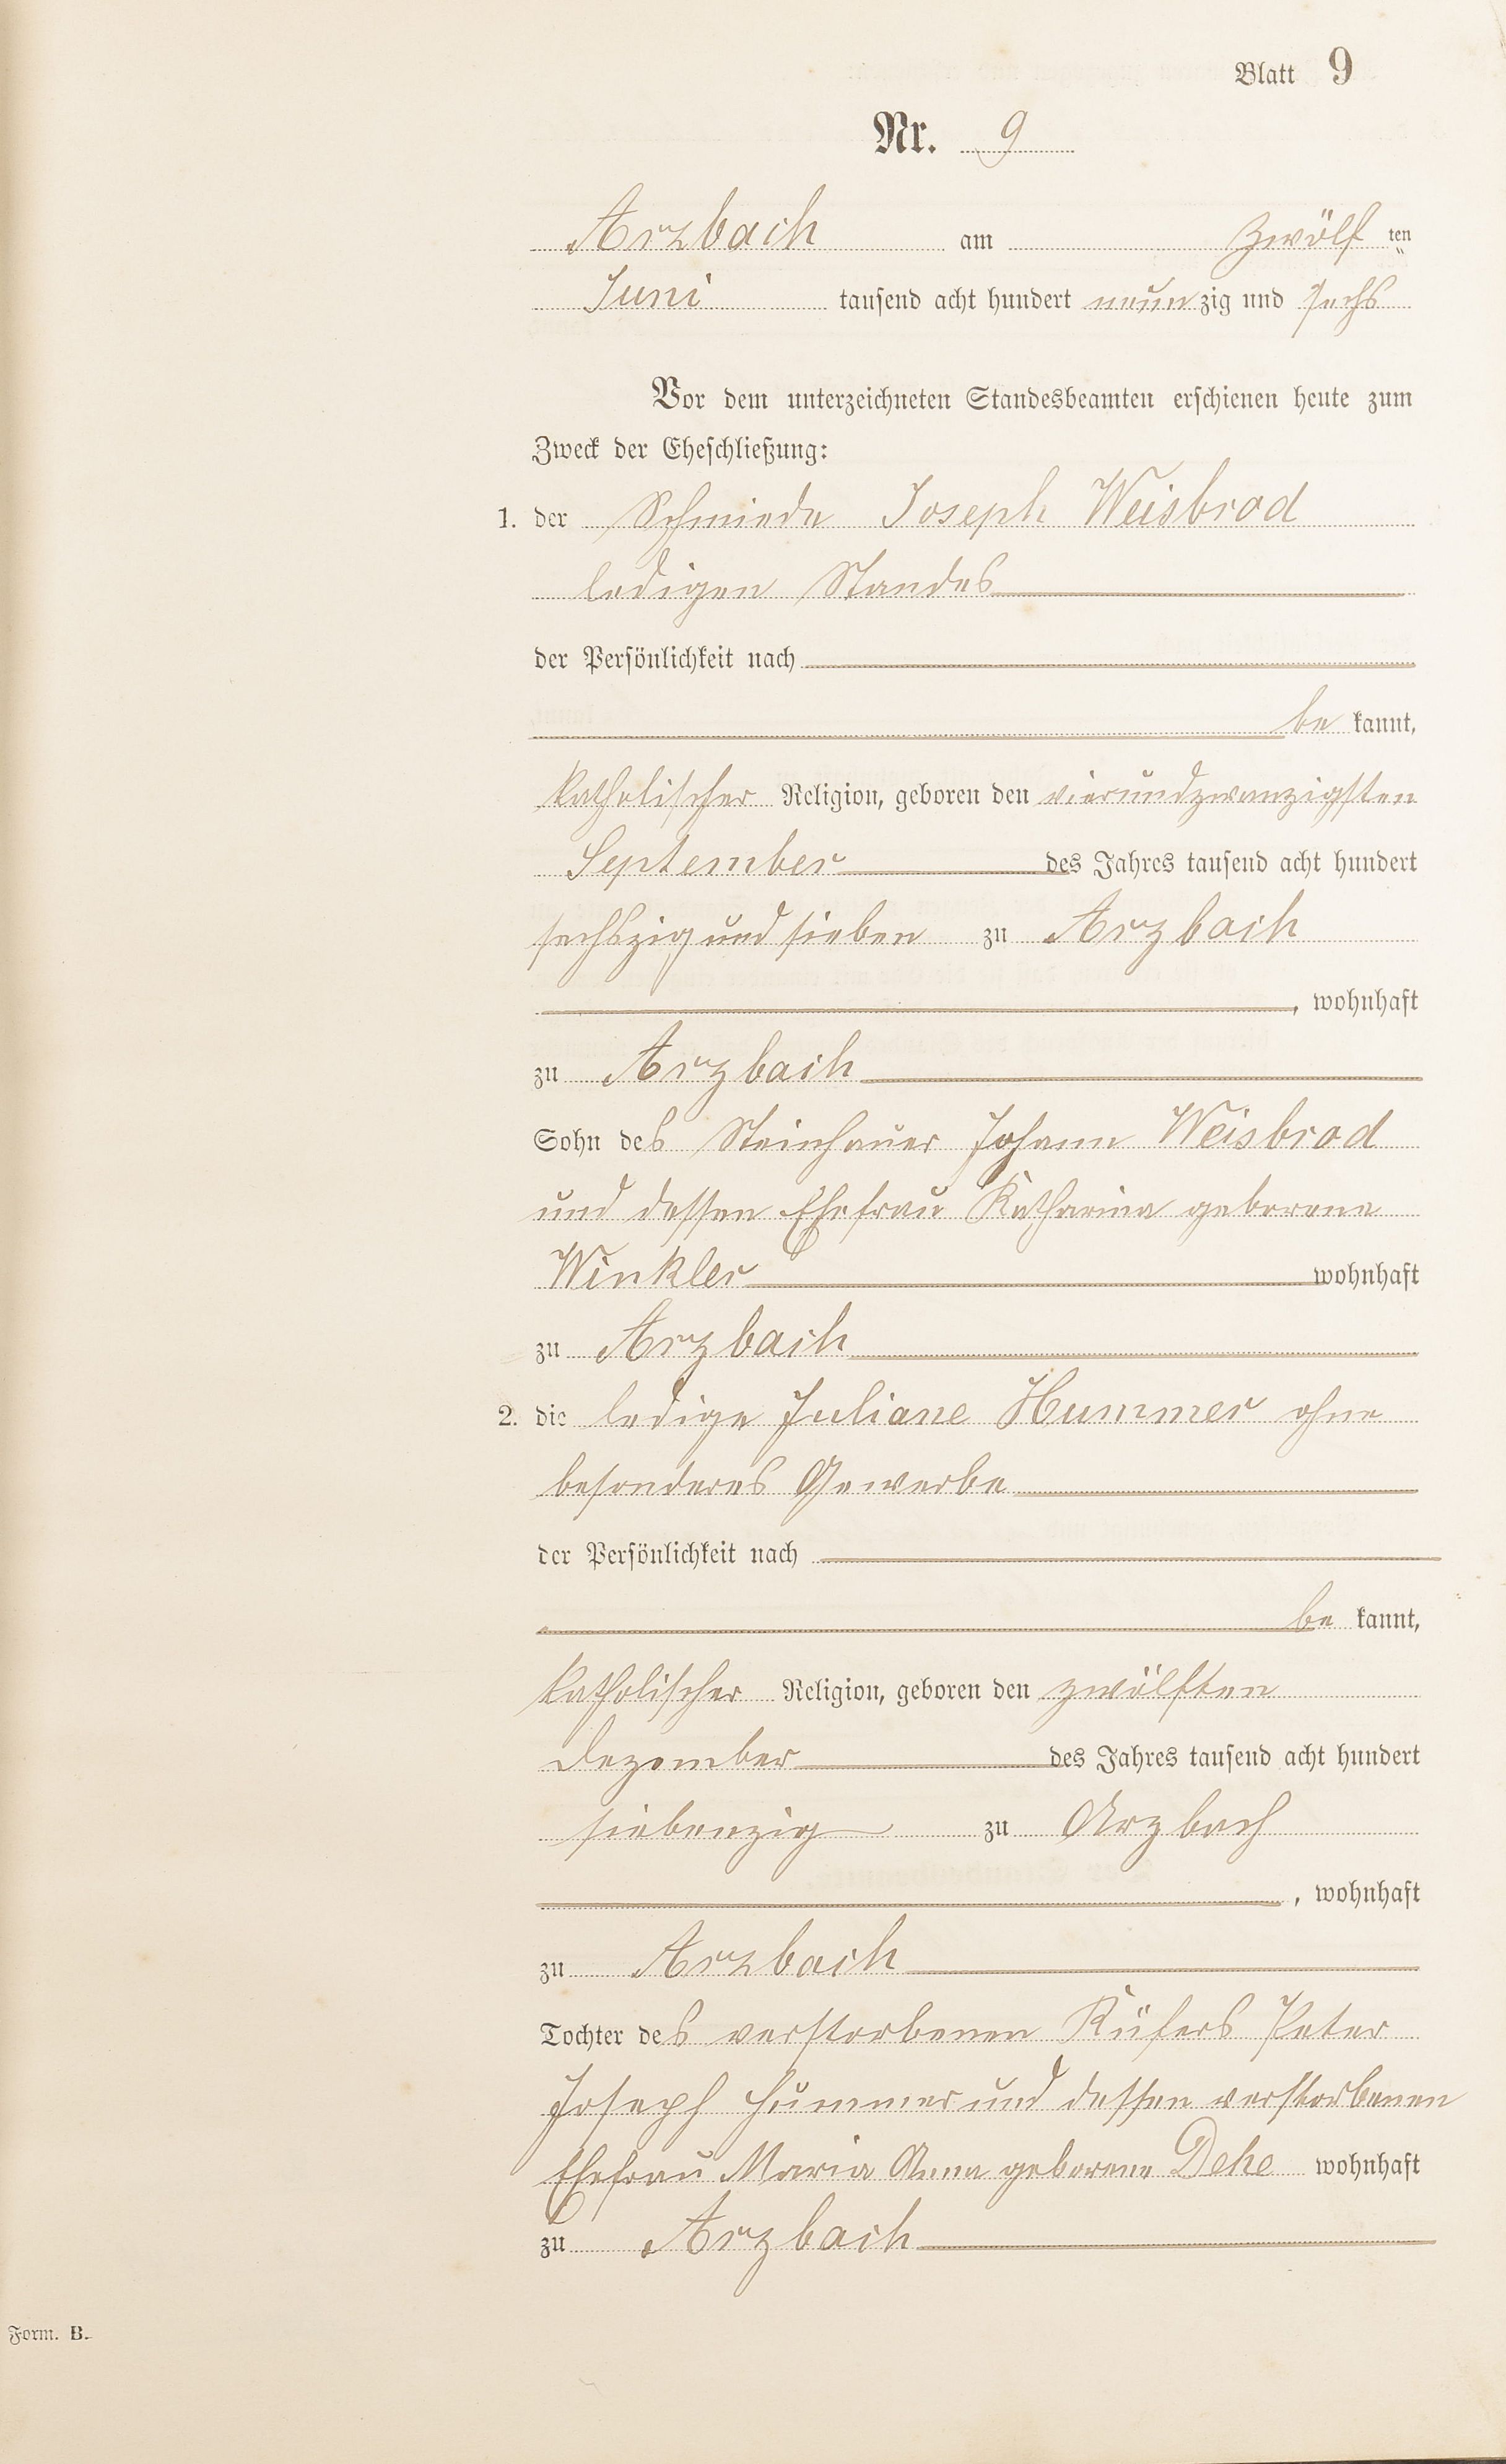 Blatt 9
Nr. 9
Arzbach am Zwölf ten
Juni tausend acht hundert neun zig und sechs
Vor dem unterzeichneten Standesbeamten erschienen heute zum
Zweck der Eheschließung:
1. der Schmiede Joseph Weisbrod
ledigen Standes
der Persönlichkeit nach
be kannt,
katholischer Religion, geboren den vierundzwanzigsten
September des Jahres tausend acht hundert
sechszig und sieben zu Arzbach
, wohnhaft
zu Arzbach
Sohn des Steinhauer Johann Weisbrod
und dessen Ehefrau Katharina geborene
Winkler wohnhaft
zu Arzbach
2. die ledige Juliane Hummer ohne
besonderes Gewerbe
der Persönlichkeit nach
be kannt,
katholischer Religion, geboren den zwölften
Dezember des Jahres tausend acht hundert
siebenzig zu Arzbach
, wohnhaft
zu Arzbach
Tochter des verstorbenen Küfers Peter
Joseph Hummer und dessen verstorbenen
Ehefrau Maria Anna geborene Dehe wohnhaft
zu Arzbach
Form. B.